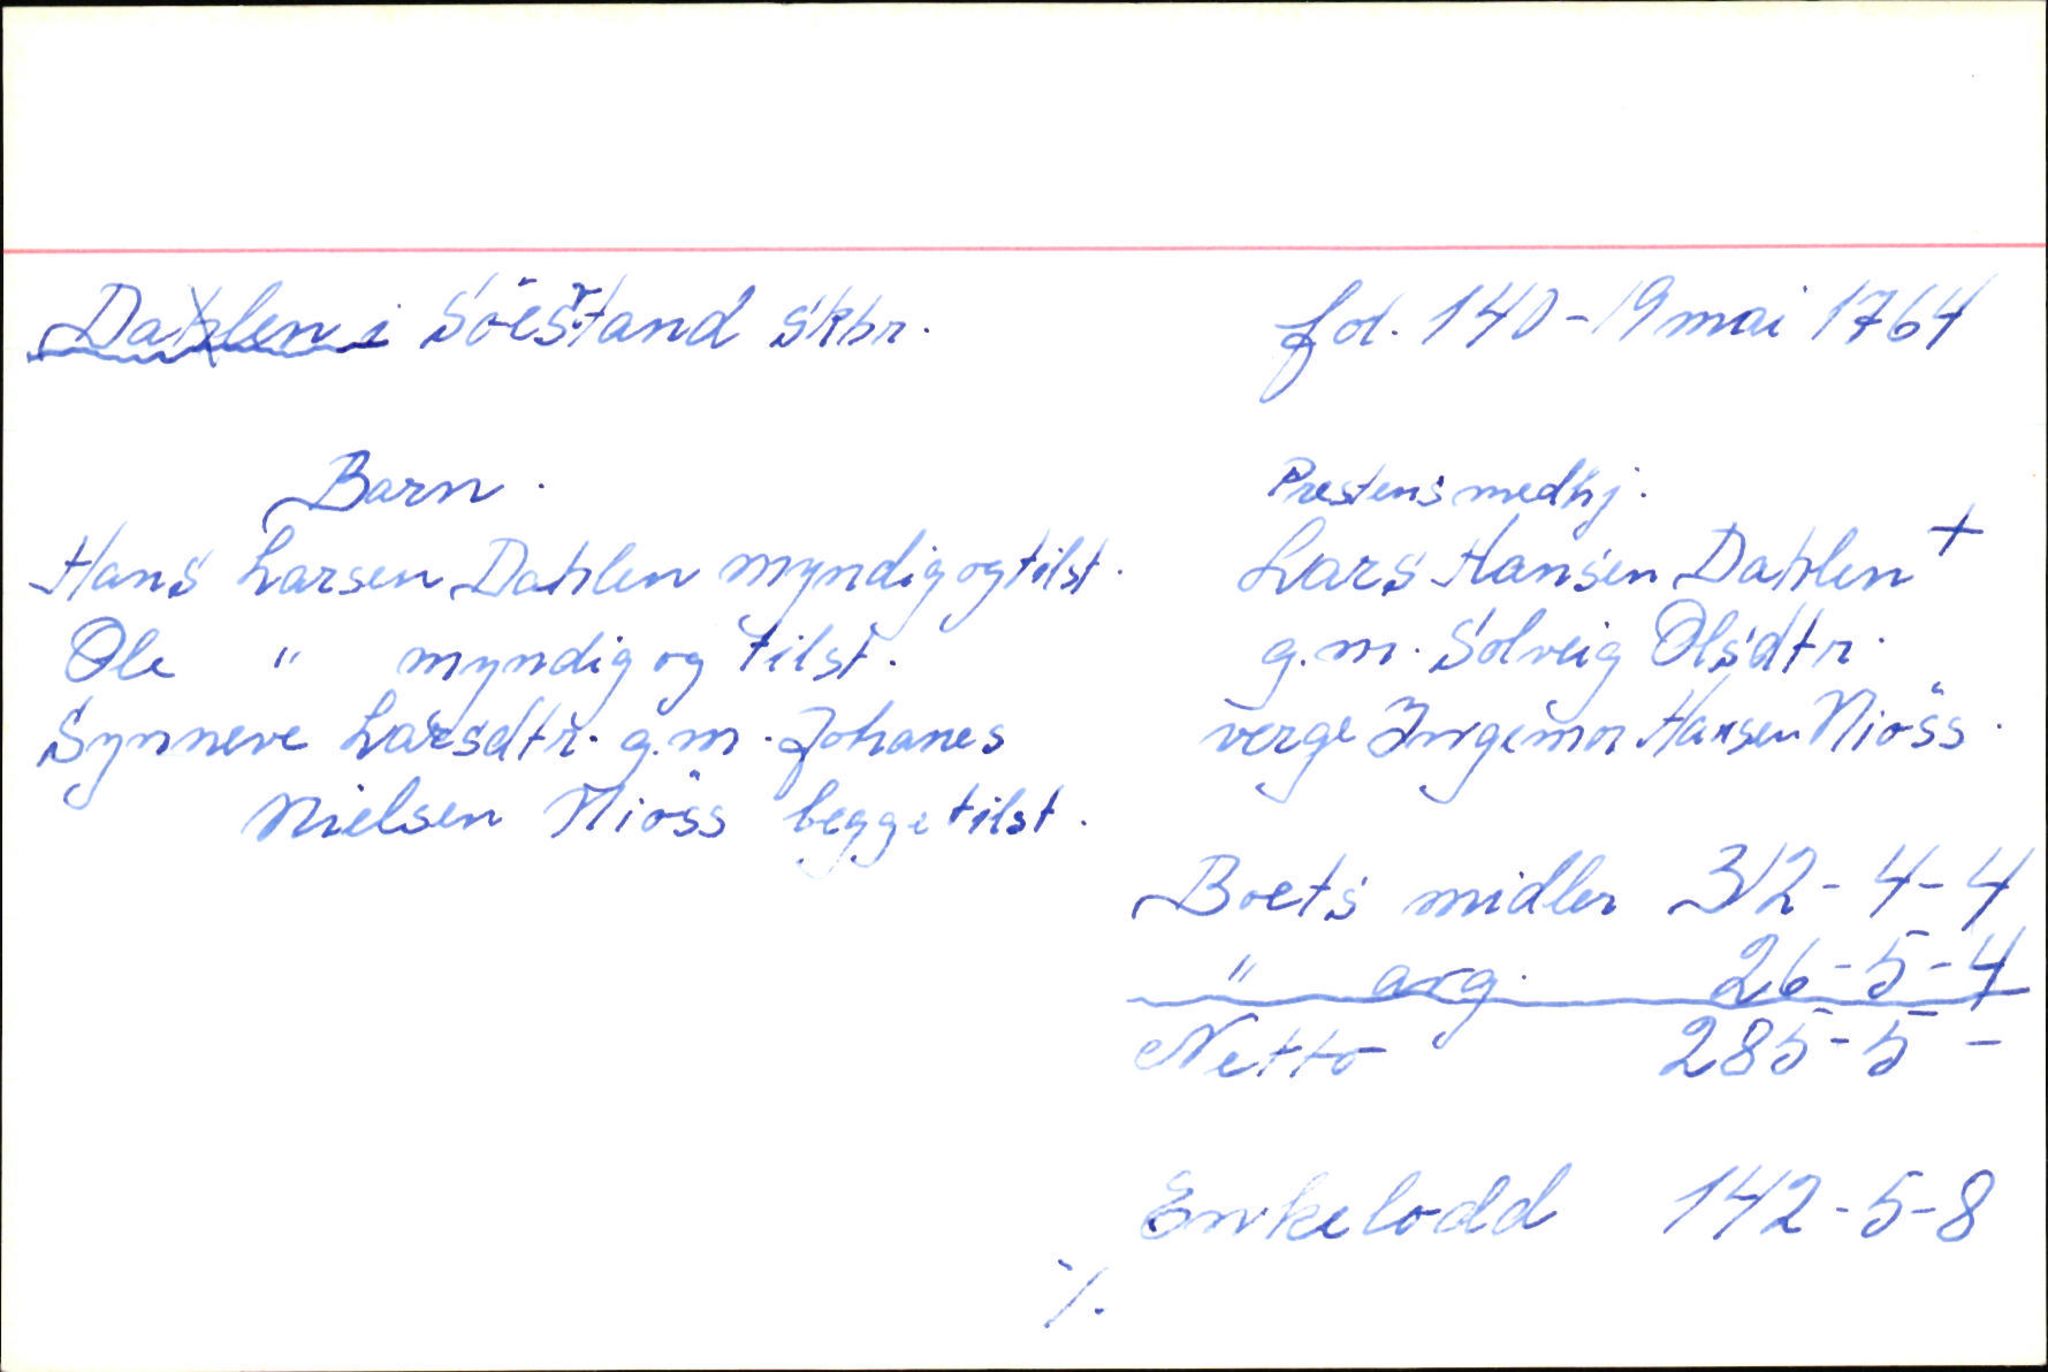 Dahlen i Söestrand skbr.
fol. 140 - 19 mai 1764
Barn.
Hans Larsen Dahlen myndig og tilst.
Ole " myndig og tilst.
Synneve Larsdtr. g.m. Johanes
Nielsen Niöss begge tilst.
Prestens medhj.
Lars Hansen Dahlen +
g.m. Solveig Olsdtr.
verge Ingemor Hansen Niöss.
Boets midler 312-4-4
" avg. 26-5-4
Netto 285-5 -
Enkelodd 142-5-8
·/.